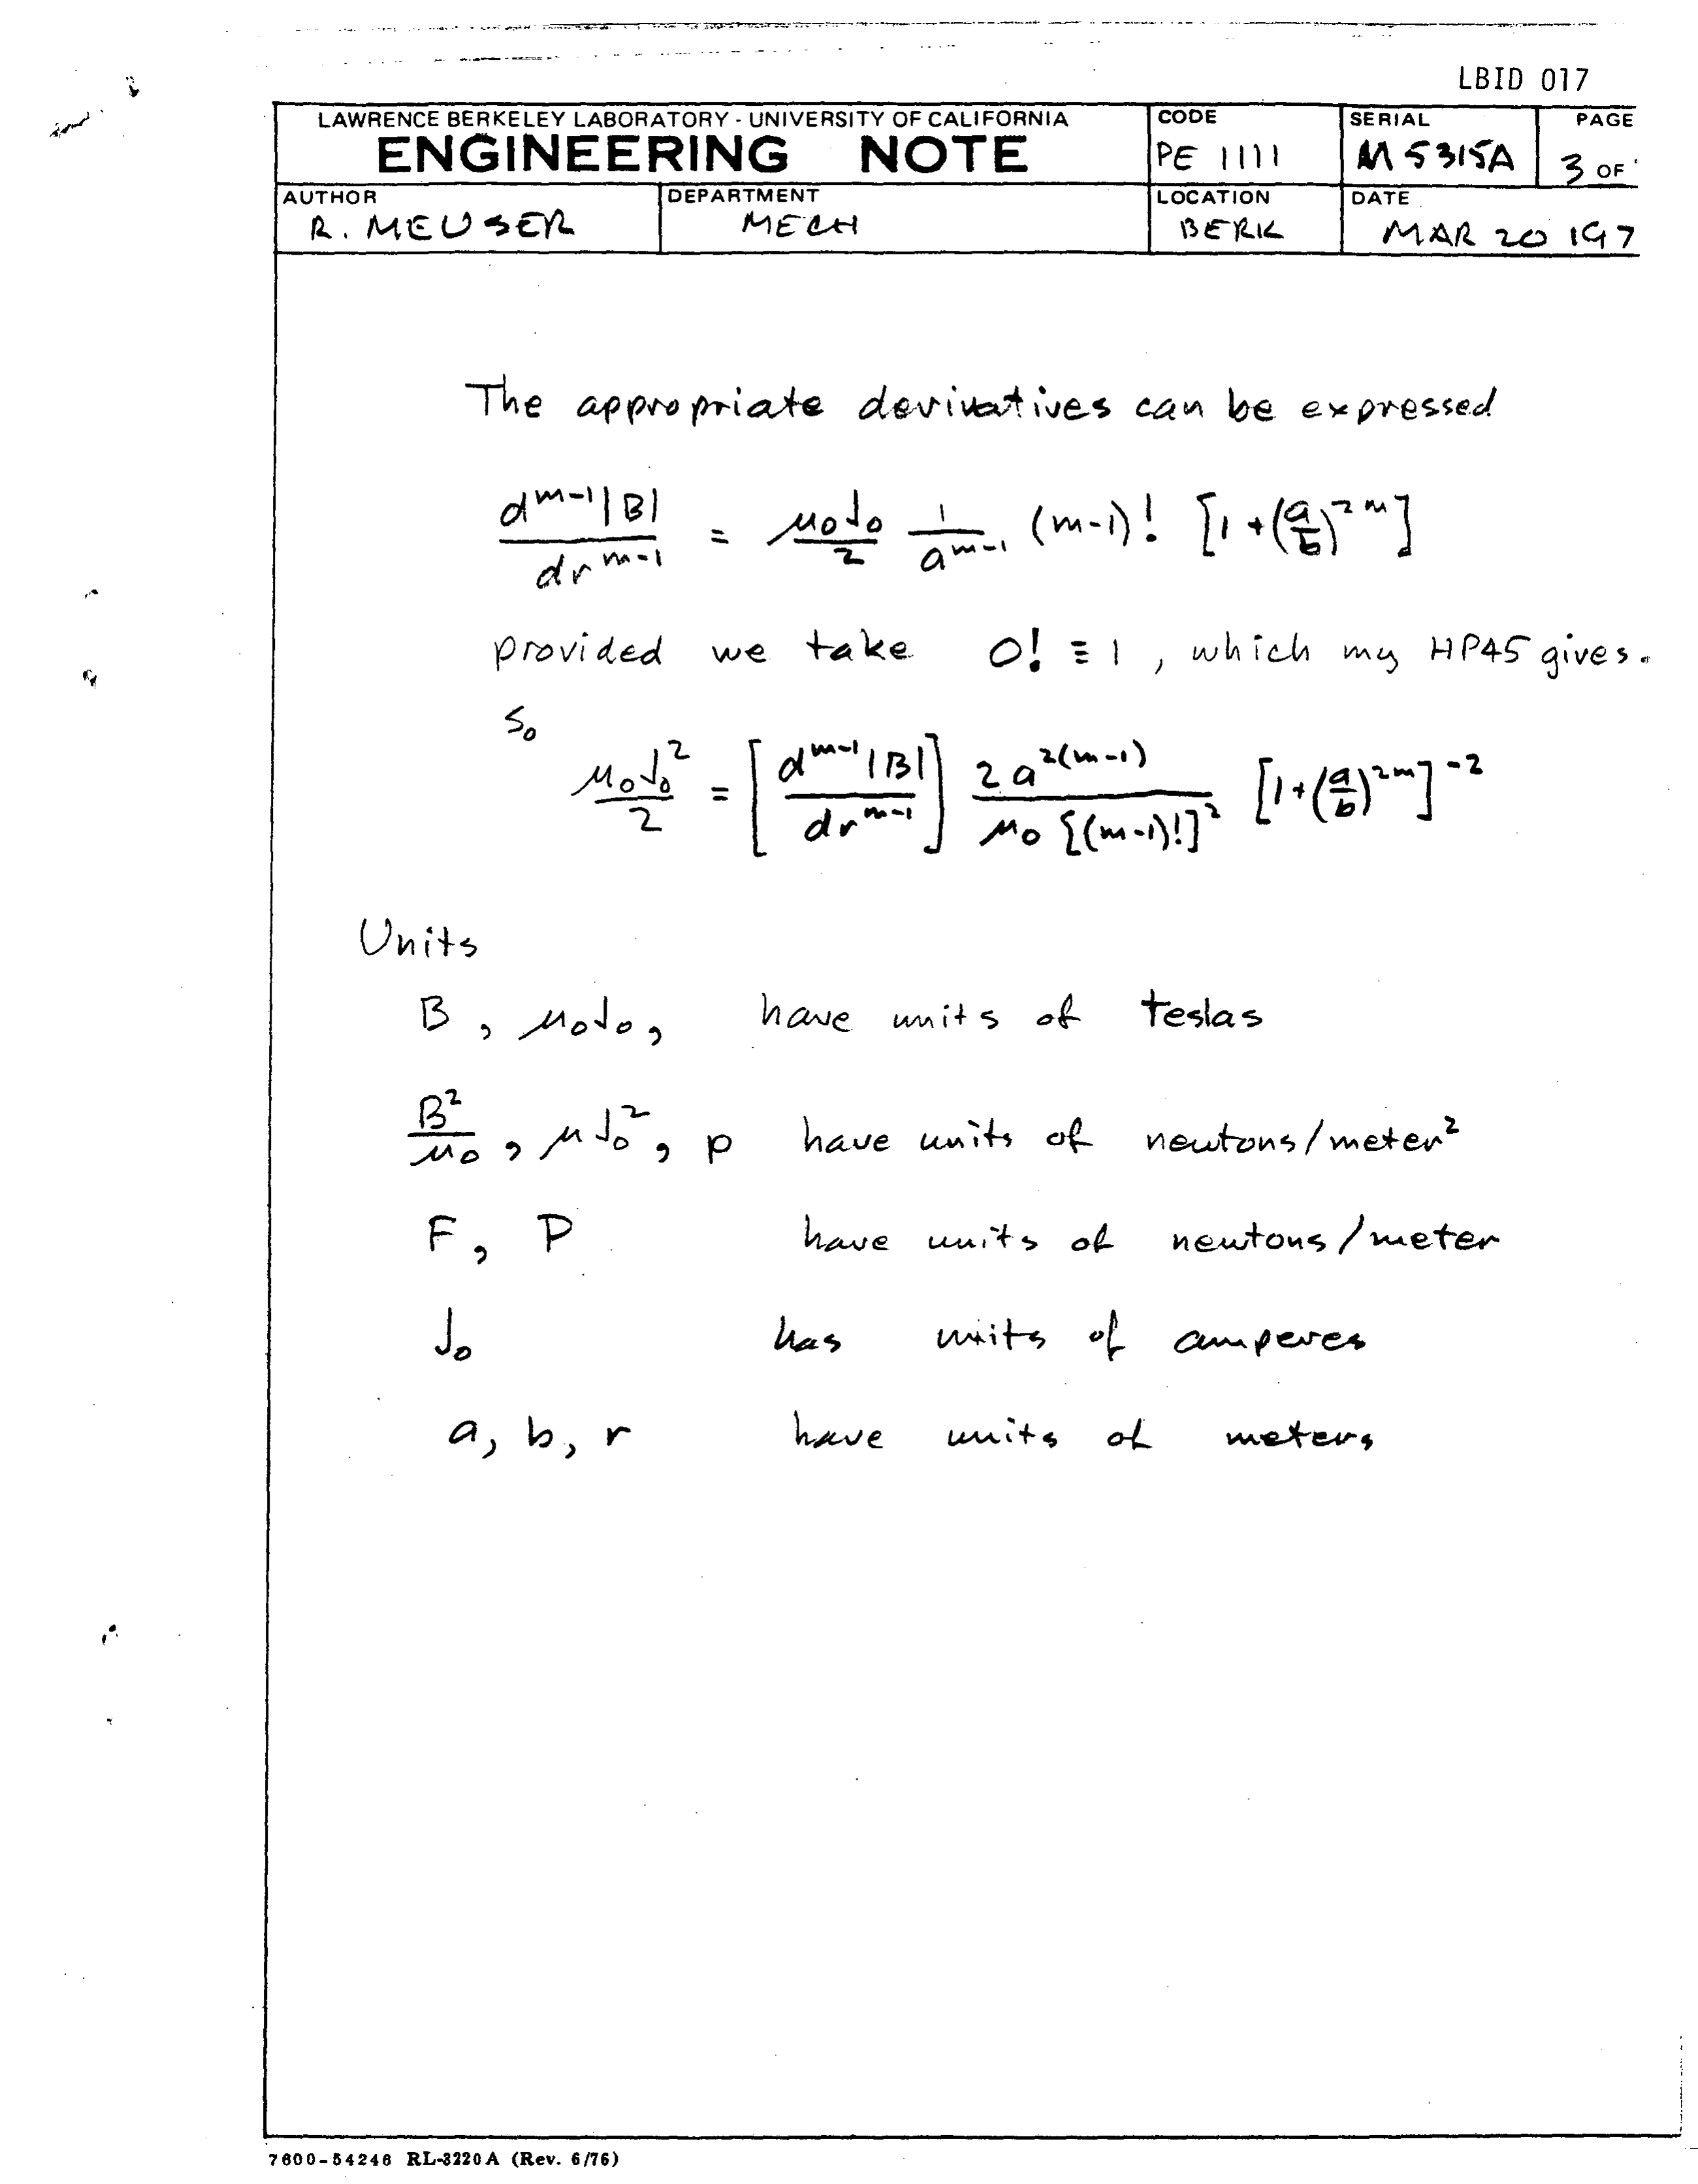 LBID 017
LAWRENCE BERKELEY LABORATORY - UNIVERSITY OF CALIFORNIA
ENGINEERING NOTE
CODE
PE 1111
SERIAL
M 5315A
PAGE
3 OF
AUTHOR
R. MEUSER
DEPARTMENT
MECH
LOCATION
BERK
DATE
MAR 20 197
The appropriate derivatives can be expressed
d^{m-1}|B| / dr^{m-1} = μ₀J₀/2 1/a^{m-1} (m-1)! [1+(a/b)^{2m}]
provided we take 0! ≡ 1, which my HP45 gives.
So
μ₀J₀²/2 = [d^{m-1}|B| / dr^{m-1}] 2a^{2(m-1)} / μ₀[(m-1)!]² [1+(a/b)^{2m}]^{-2}
Units
B, μ₀J₀, have units of teslas
B²/μ₀, μJ₀², p have units of newtons/meter²
F, P have units of newtons/meter
J₀ has units of amperes
a, b, r have units of meters
7600-54246 RL-3220A (Rev. 6/76)